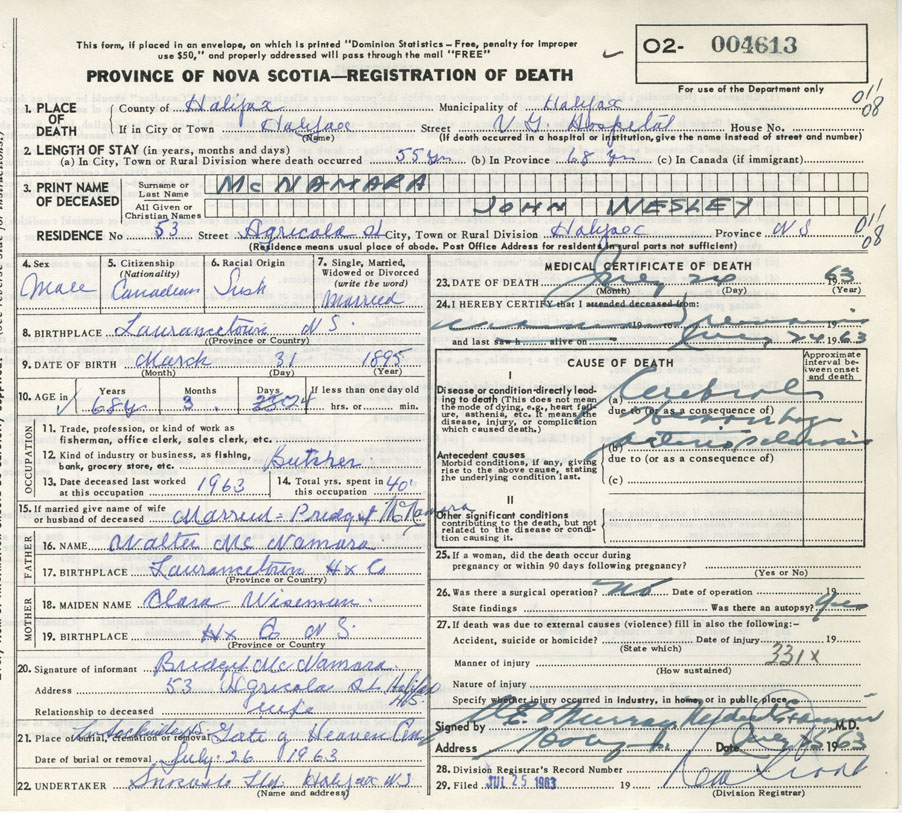 This form, if placed in an envelope, on which is printed "Dominion Statistics – Free, penalty for improper
use $50," and properly addressed will pass through the mail "FREE"
O2- 004613
PROVINCE OF NOVA SCOTIA—REGISTRATION OF DEATH
For use of the Department only
1. PLACE OF DEATH
County of Halifax Municipality of Halifax
011/08
If in City or Town Halifax Street V G Hospital House No.
(Name) (If death occurred in a hospital or institution, give the name instead of street and number)
2. LENGTH OF STAY (in years, months and days)
(a) In City, Town or Rural Division where death occurred 55 yrs (b) In Province 68 yrs (c) In Canada (if immigrant)
3. PRINT NAME OF DECEASED
Surname or Last Name McNAMARA
All Given or Christian Names JOHN WESLEY
RESIDENCE No 53 Street Agricola St City, Town or Rural Division Halifax Province N S
011/08
(Residence means usual place of abode. Post Office Address for residents in rural parts not sufficient)
4. Sex Male
5. Citizenship (Nationality) Canadian
6. Racial Origin Irish
7. Single, Married, Widowed or Divorced (write the word) Married
8. BIRTHPLACE Laurancetown N S.
(Province or Country)
9. DATE OF BIRTH March 31 1895
(Month) (Day) (Year)
10. AGE in Years Months Days If less than one day old
68y 3 24 hrs. or min.
OCCUPATION
11. Trade, profession, or kind of work as
fisherman, office clerk, sales clerk, etc.
12. Kind of industry or business, as fishing,
bank, grocery store, etc. Butcher
13. Date deceased last worked at this occupation 1963
14. Total yrs. spent in this occupation 40
15. If married give name of wife or husband of deceased Married = Bridget McNamara
FATHER
16. NAME Walter McNamara
17. BIRTHPLACE Laurancetown Hx Co
(Province or Country)
MOTHER
18. MAIDEN NAME Clara Wiseman
19. BIRTHPLACE Hx Co N S.
(Province or Country)
20. Signature of informant Bridget McNamara
Address 53 Agricola St. Halifax NS.
Relationship to deceased wife
21. Place of burial, cremation or removal Gate of Heaven Cem
Date of burial or removal July 26 1963
22. UNDERTAKER Snows Ltd. Halifax N S
(Name and address)
MEDICAL CERTIFICATE OF DEATH
23. DATE OF DEATH July 24 1963
(Month) (Day) (Year)
24. I HEREBY CERTIFY that I attended deceased from:
19 to
and last saw h alive on July 24 1963
CAUSE OF DEATH
Approximate interval between onset and death
I
Disease or condition directly leading to death (This does not mean the mode of dying, e.g., heart failure, asthenia, etc. It means the disease, injury, or complication which caused death.)
(a) Cerebral
due to (or as a consequence of) hemorrhage
(b) arteriosclerosis
due to (or as a consequence of)
(c)
Antecedent causes
Morbid conditions, if any, giving rise to the above cause, stating the underlying condition last.
II
Other significant conditions
contributing to the death, but not related to the disease or condition causing it.
25. If a woman, did the death occur during
pregnancy or within 90 days following pregnancy?
(Yes or No)
26. Was there a surgical operation? No Date of operation 19
State findings Was there an autopsy? Yes
27. If death was due to external causes (violence) fill in also the following:–
Accident, suicide or homicide? Date of injury 19
(State which)
331X
Manner of injury
(How sustained)
Nature of injury
Specify whether injury occurred in industry, in home, or in public place
Signed by Murray M.D.
Address Date July 25 1963
28. Division Registrar's Record Number
29. Filed JUL 25 1963 19
(Division Registrar)